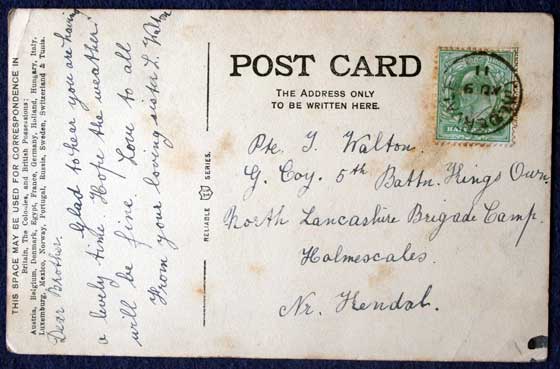 THIS SPACE MAY BE USED FOR CORRESPONDENCE IN
Britain, The Colonies, and British Possessions;
Austria, Belgium, Denmark, Egypt, France, Germany, Holland, Hungary, Italy,
Luxemburg, Mexico, Norway, Portugal, Russia, Sweden, Switzerland & Tunis.
Dear Brother.
Glad to hear you are having
a lovely time Hope the weather
will be fine. Love to all
From your loving sister L. Walton
RELIABLE SERIES.
POST CARD
THE ADDRESS ONLY
TO BE WRITTEN HERE.
AU 9
11
Pte. J. Walton.
G. Coy. 5th Battn. Kings Own
North Lancashire Brigade Camp.
Holmescales.
Nr. Kendal.